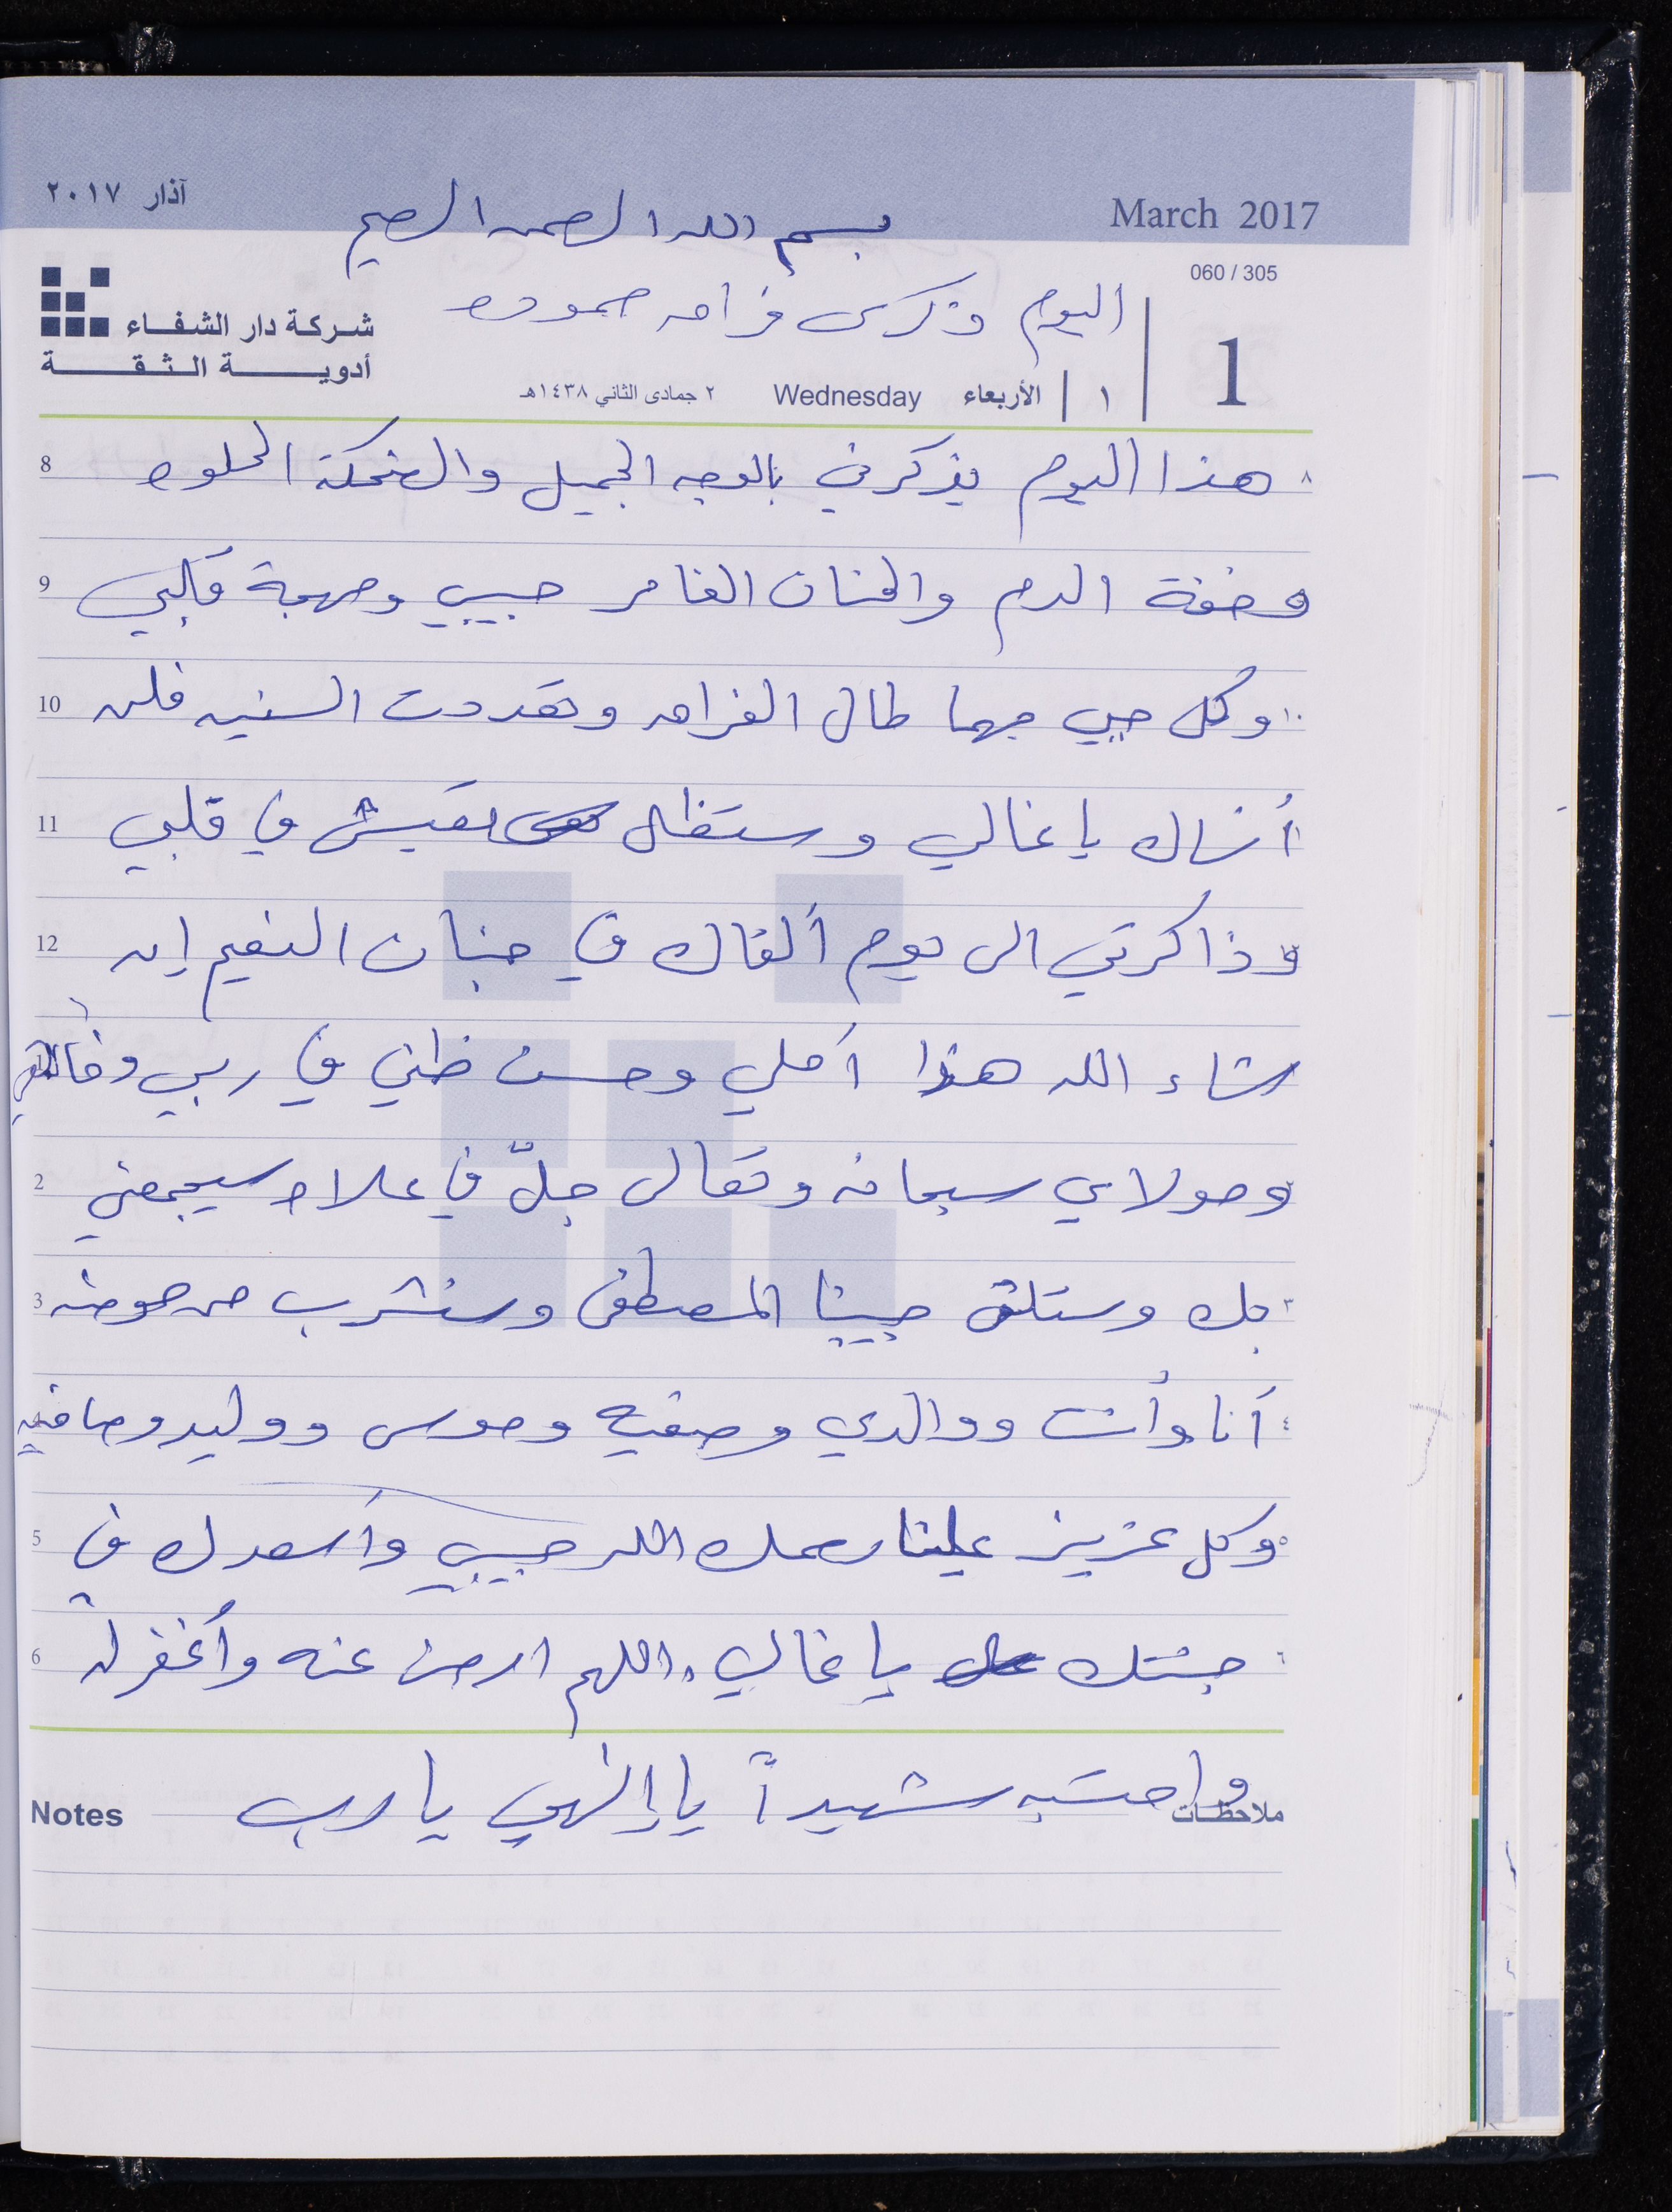 آذار ٢٠١٧
March 2017
بسم الله الرحمن الرحيم
060 / 305
اليوم ذكرى فراق حموده
شركة دار الشفاء
أدوية الثقة
1
١ الأربعاء Wednesday ٢ جمادى الثاني ١٤٣٨هـ
8 هذا اليوم يذكرني بالوجه الجميل والضحكة الحلوه ٨
9 وخفة الدم والحنان الغامر حبيبي ومهجة قلبي
10 وكل حبي مهما طال الفراق وتعددت السنين فلن ١٠
11 أنساك يا غالي وستظل تعيش في قلبي ١١
12 وذاكرتي الى يوم ألقاك في جنان النعيم إن
شاء الله هذا أملي وحسن ظني في ربي وخالقي
2 ومولاي سبحانه وتعالى جلّ في علاه سيجمعني
3 بك وستلقى حبيبنا المصطفى وسنشرب من حوضه ٣
أنا وأنت ووالدي وصفيه وموسى ووليد وصافيه ٤
5 وكل عزيز علينا رحمك الله حبيبي وأسعدك في ٥
6 جنتك يا غالي، اللهم ارض عنه وأغفر له ٦
Notes واحتسبه شهيداً يا إلهي يا رب ملاحظات